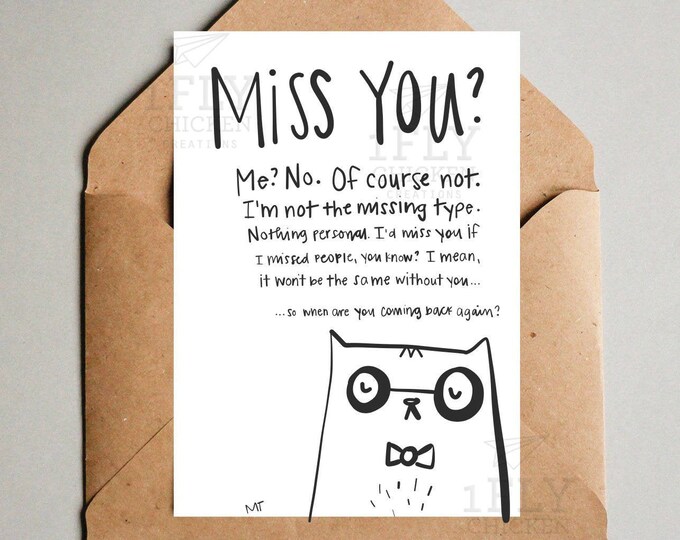 Miss You?
Me? No. Of course not.
I'm not the missing type.
Nothing personal. I'd miss you if
I missed people, you know? I mean,
it won't be the same without you...
...so when are you coming back again?
MT
1 FLY
CHICKEN
CREATIONS
1 FLY
CHICKEN
CREATIONS
1 FLY
CHICKEN